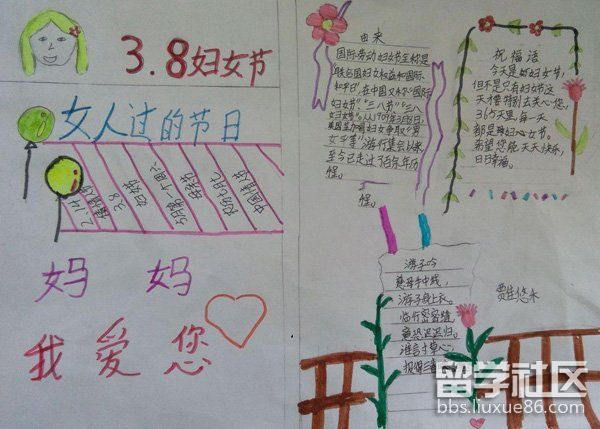 3.8妇女节
女人过的节日
2.14
情人节
3.8
妇女节
5月第二个周六
母亲节
农历七月七
中国情人节
妈 妈
我 爱 您
由来
国际劳动妇女节全称是
联合国妇女权益和国际
和平日”,在中国又称“国际
妇女节”“三八节”“三八
妇女节”。从1909年3月8日,
女平等”游行集会以来,
至今已走过了百余年历
程。
祝福语
今天是妇女节,
但不是只有妇女节这
天才特别去关心您,
365天里,每一天
都是妇女节。
希望您能天天快乐,
日日幸福。
游子吟
慈母手中线,
游子身上衣。
临行密密缝,
意恐迟迟归。
谁言寸草心,
报得三春晖。
留学社区
bbs.liuxue86.com